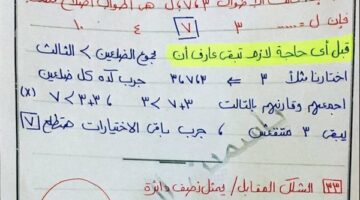 فإن ل = ..... ٣ ٧ ٤ ١٠
قبل أى حاجة لازم تبقى عارف أن مجموع الضلعين > الثالث
اختارنا مثلاً ٣ ⇐ ٣،٦،٧ جرب كدة كل ضلعين
اجمعهم وقارنهم بالتالت ٣+٧ > ٣ ٣+٣ < ٧ (x)
يبقى ٣ متنفعش ، جرب باقى الاختيارات هتطلع ٧
٣٣ الشكل المقابل / يمثل نصف دائرة